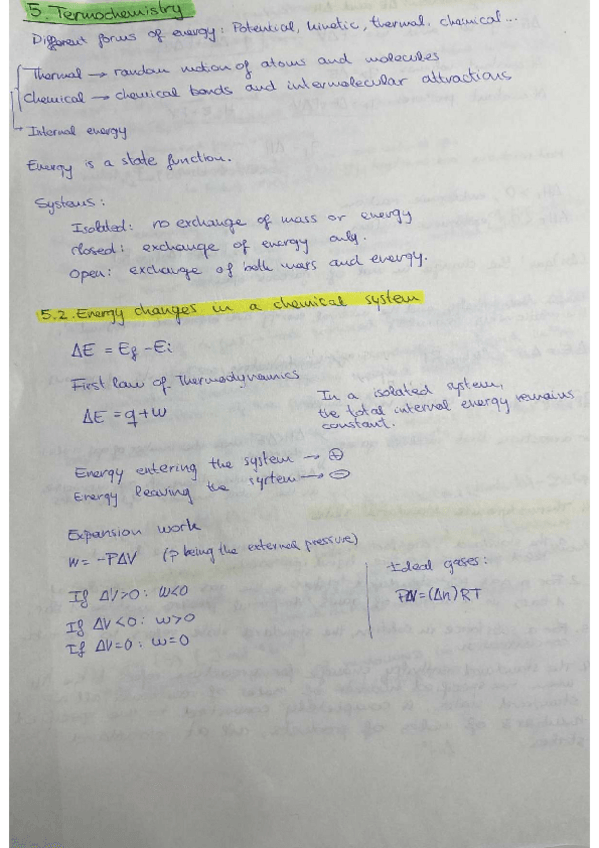 5. Termochemistry
Different forms of energy: Potential, kinetic, thermal, chemical...
Thermal → random motion of atoms and molecules
Chemical → chemical bonds and intermolecular attractions
Internal energy
Energy is a state function.
Systems:
Isolated: no exchange of mass or energy
Closed: exchange of energy only.
Open: exchange of both mass and energy.
5.2. Energy changes in a chemical system
ΔE = Ef - Ei
First law of Thermodynamics
ΔE = q + w
In a isolated system,
the total internal energy remains
constant.
Energy entering the system → ⊕
Energy leaving the system → ⊖
Expansion work
w = -PΔV (P being the external pressure)
If ΔV>0: w<0
If ΔV<0: w>0
If ΔV=0: w=0
Ideal gases:
PΔV=(Δn)RT